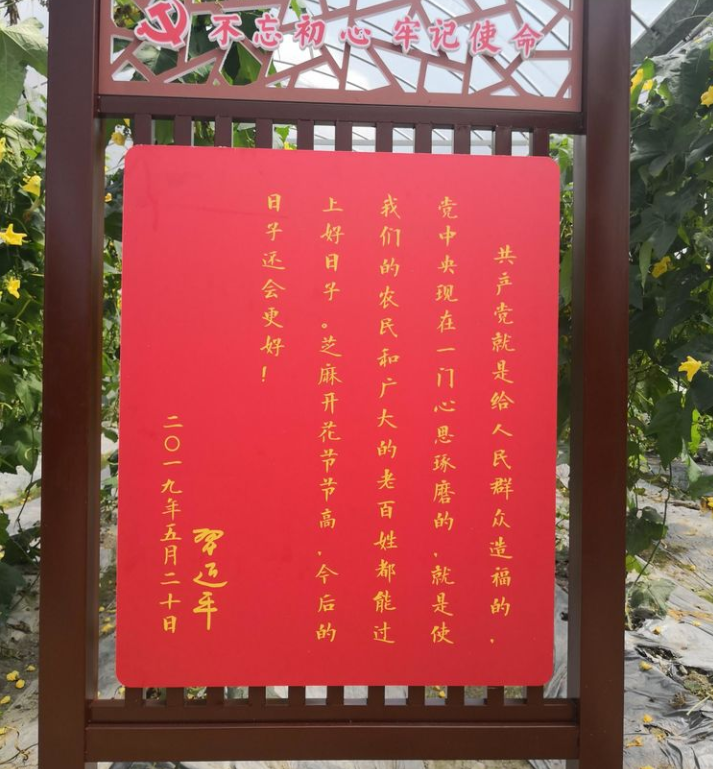 不忘初心 牢记使命
共产党就是给人民群众造福的，
党中央现在一门心思琢磨的，就是使
我们的农民和广大的老百姓都能过
上好日子。芝麻开花节节高，今后的
日子还会更好！
习近平
二〇一九年五月二十日